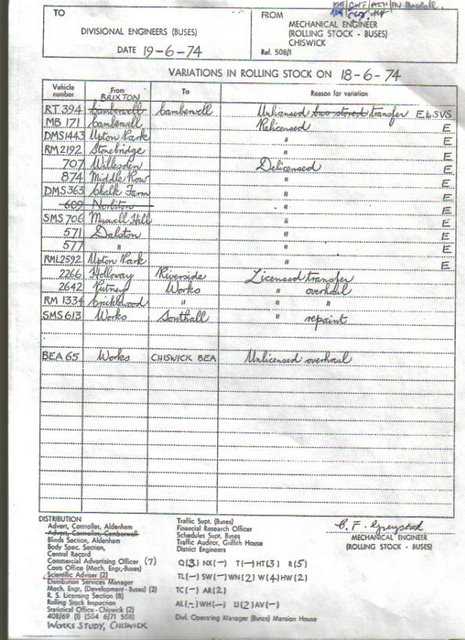 TO
DIVISIONAL ENGINEERS (BUSES)
DATE 19-6-74
FROM
MECHANICAL ENGINEER
(ROLLING STOCK - BUSES)
CHISWICK
Ref. 508/1
VARIATIONS IN ROLLING STOCK ON 18-6-74
Vehicle number From To Reason for variation
BRIXTON
RT 394 Camberwell Camberwell Unlicensed bus stored transfer E 6.5VS
MB 171 Camberwell Relicensed E
DMS1443 Upton Park " E
RM 2192 Stonebridge " E
707 Willesden Delicensed E
874 Middle Row " E
DMS363 Chalk Farm " E
609 Norbiton "
SMS 706 Muswell Hill " E
571 Dalston " E
577 " " E
RML2592 Upton Park " E
2266 Holloway Riverside Licensed transfer
2642 Putney Works " overhaul
RM 1334 Cricklewood " " "
SMS 613 Works Southall " repaint
BEA 65 Works CHISWICK BEA Unlicensed overhaul
DISTRIBUTION
Advert. Controller, Aldenham
Advert. Controller, Camberwell
Blinds Section, Aldenham
Body Spec. Section,
Central Record
Commercial Advertising Officer (7)
Costs Office (Mech. Engr.-Buses)
Scientific Adviser (2)
Distribution Services Manager
Mech. Engr. (Development - Buses) (2)
R. S. Licensing Section (8)
Rolling Stock Inspection
Statistical Office - Chiswick (2)
408/69 (1) (504 6/71 508)
WORKS STUDY, CHISWICK
Traffic Supt. (Buses)
Financial Research Officer
Schedules Supt. Buses
Traffic Auditor, Griffith House
District Engineers
Q(3) NX(-) T(-) HT(3) R(5)
TL(-) SW(-) WN(2) W(4) HW(2)
TC(-) AR(2)
AL(-) WH(-) U(2) AV(-)
Divl. Operating Manager (Buses) Mansion House
MECHANICAL ENGINEER
(ROLLING STOCK - BUSES)